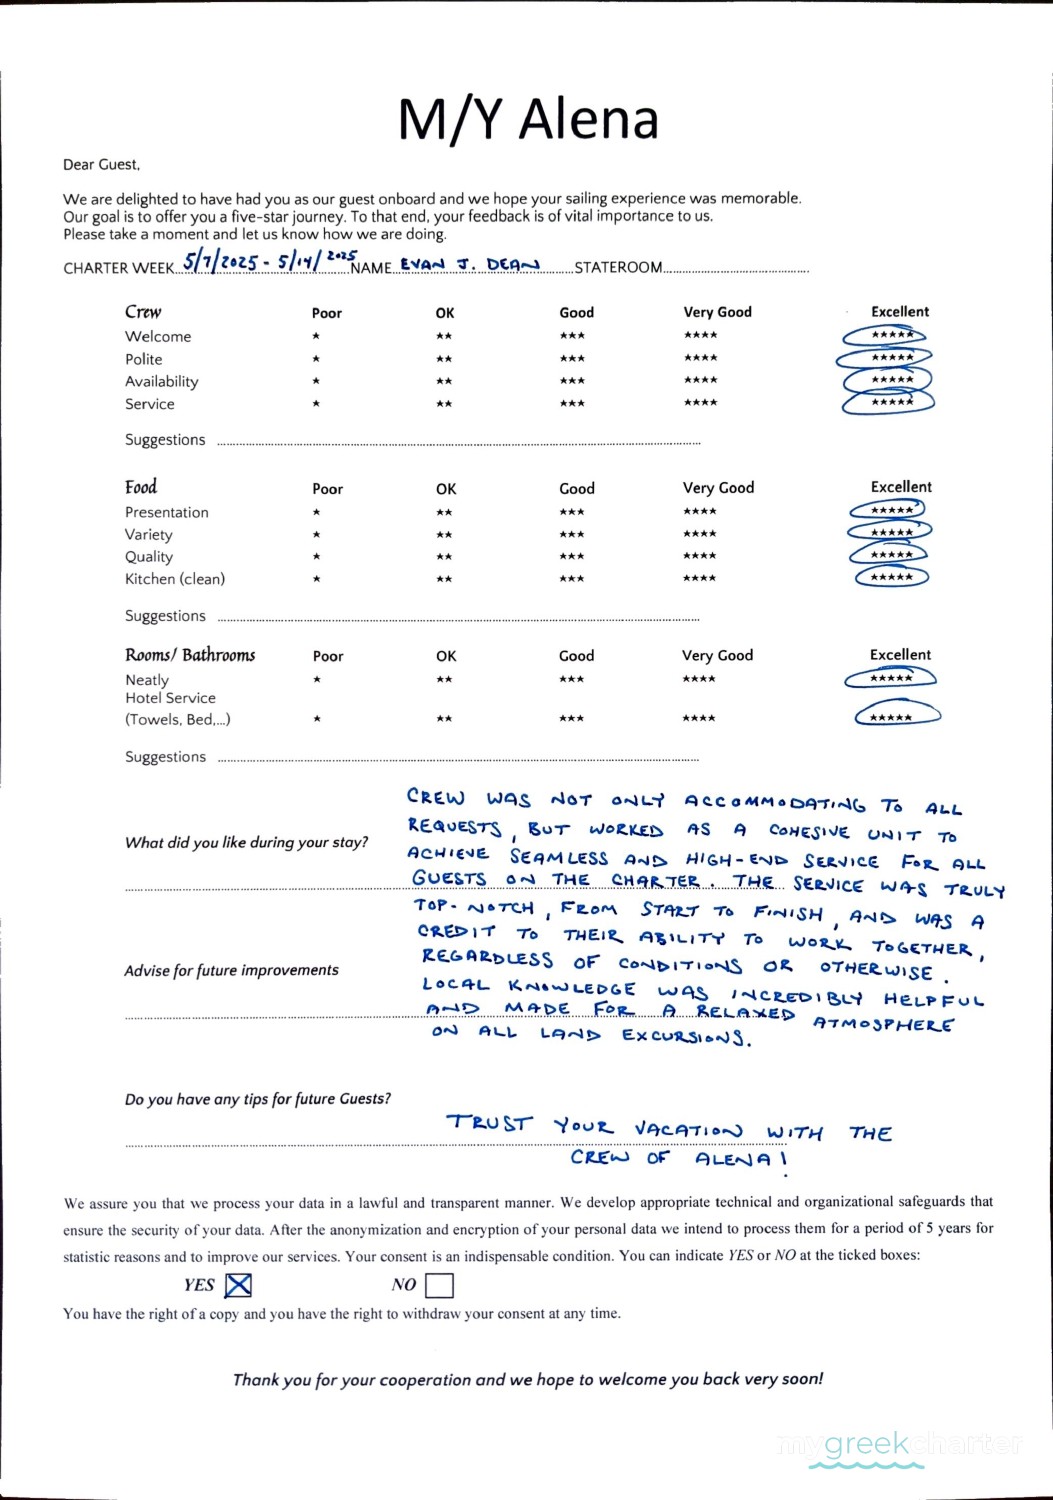 M/Y Alena
Dear Guest,
We are delighted to have had you as our guest onboard and we hope your sailing experience was memorable.
Our goal is to offer you a five-star journey. To that end, your feedback is of vital importance to us.
Please take a moment and let us know how we are doing.
CHARTER WEEK 5/7/2025 - 5/14/2025 NAME EVAN J. DEAN STATEROOM
Crew Poor OK Good Very Good Excellent
Welcome ★ ★★ ★★★ ★★★★ ★★★★★
Polite ★ ★★ ★★★ ★★★★ ★★★★★
Availability ★ ★★ ★★★ ★★★★ ★★★★★
Service ★ ★★ ★★★ ★★★★ ★★★★★
Suggestions
Food Poor OK Good Very Good Excellent
Presentation ★ ★★ ★★★ ★★★★ ★★★★★
Variety ★ ★★ ★★★ ★★★★ ★★★★★
Quality ★ ★★ ★★★ ★★★★ ★★★★★
Kitchen (clean) ★ ★★ ★★★ ★★★★ ★★★★★
Suggestions
Rooms/ Bathrooms Poor OK Good Very Good Excellent
Neatly ★ ★★ ★★★ ★★★★ ★★★★★
Hotel Service
(Towels, Bed,...) ★ ★★ ★★★ ★★★★ ★★★★★
Suggestions
What did you like during your stay?
CREW WAS NOT ONLY ACCOMMODATING TO ALL
REQUESTS, BUT WORKED AS A COHESIVE UNIT TO
ACHIEVE SEAMLESS AND HIGH-END SERVICE FOR ALL
GUESTS ON THE CHARTER. THE SERVICE WAS TRULY
TOP-NOTCH, FROM START TO FINISH, AND WAS A
CREDIT TO THEIR ABILITY TO WORK TOGETHER,
REGARDLESS OF CONDITIONS OR OTHERWISE.
LOCAL KNOWLEDGE WAS INCREDIBLY HELPFUL
AND MADE FOR A RELAXED ATMOSPHERE
ON ALL LAND EXCURSIONS.
Advise for future improvements
Do you have any tips for future Guests?
TRUST YOUR VACATION WITH THE
CREW OF ALENA!
We assure you that we process your data in a lawful and transparent manner. We develop appropriate technical and organizational safeguards that
ensure the security of your data. After the anonymization and encryption of your personal data we intend to process them for a period of 5 years for
statistic reasons and to improve our services. Your consent is an indispensable condition. You can indicate YES or NO at the ticked boxes:
YES NO
You have the right of a copy and you have the right to withdraw your consent at any time.
Thank you for your cooperation and we hope to welcome you back very soon!
mygreekcharter